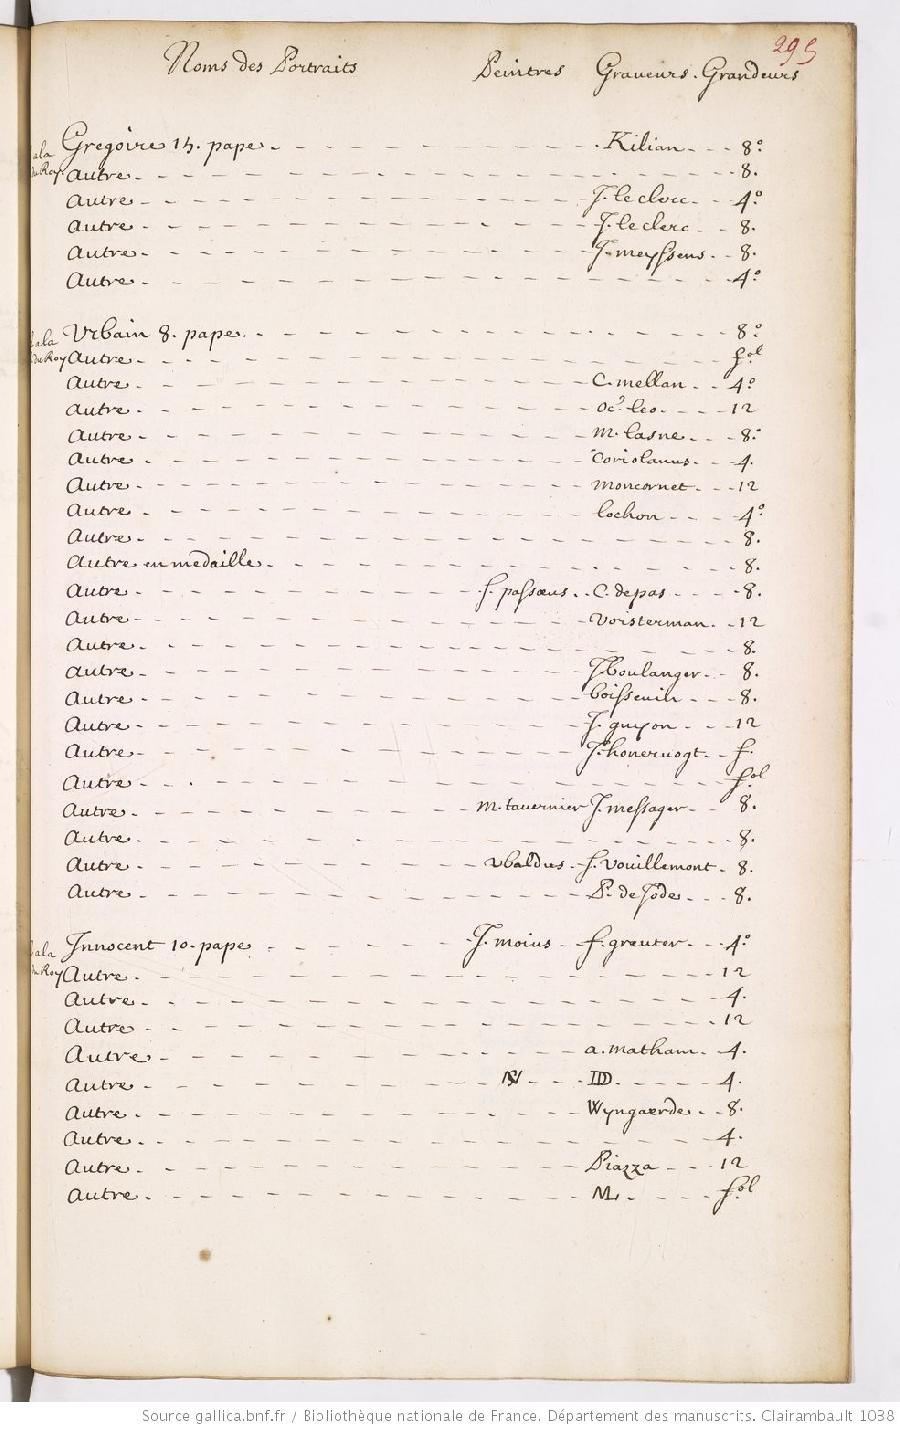 295
Noms des Portraits Peintres Graveurs. Grandeurs
Gregoire 15. pape. Kilian 8.°
ala
du Roy
Autre 8.
Autre J. leclerc 4.°
Autre J. leclerc 8.
Autre J. meyssens 8.
Autre 4.°
Urbain 8. pape 8.°
ala
du Roy
Autre fol
Autre C. mellan 4.°
Autre oc.° leo 12
Autre M. lasne 8.°
Autre Coriolanus 4.
Autre moncornet 12
Autre lochon 4.°
Autre 8.
Autre en medaille 8.
Autre f. passœus C. depas 8.
Autre Voisterman 12
Autre 8.
Autre J. boulanger 8.
Autre boissevin 8.
Autre J. guyon 12
Autre J. honervogt f.
Autre fol
Autre M. tavernier J. messager 8.
Autre 8.
Autre Ubaldus f. Vouillemont 8.
Autre P. de Jode 8.
Innocent 10. pape J. moius f. greuter 4.°
ala
du Roy
Autre 12
Autre 4.
Autre 12
Autre a. matham 4.
Autre 4.
Autre Wyngaerde 8.
Autre 4.
Autre Piazza 12
Autre ML fol
Source gallica.bnf.fr / Bibliothèque nationale de France. Département des manuscrits. Clairambault 1038